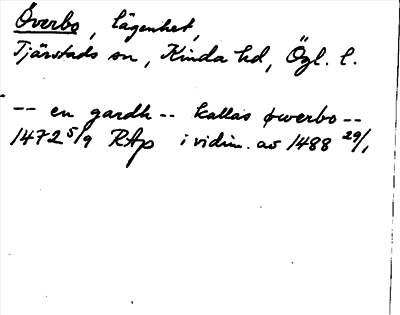 Överbo, lägenhet,
Tjärstads sn, Kinda hd, Ögl. l.
-- en gardh -- kallas øwerbo --
1472 5/9 RAp i vidim. av 1488 29/1